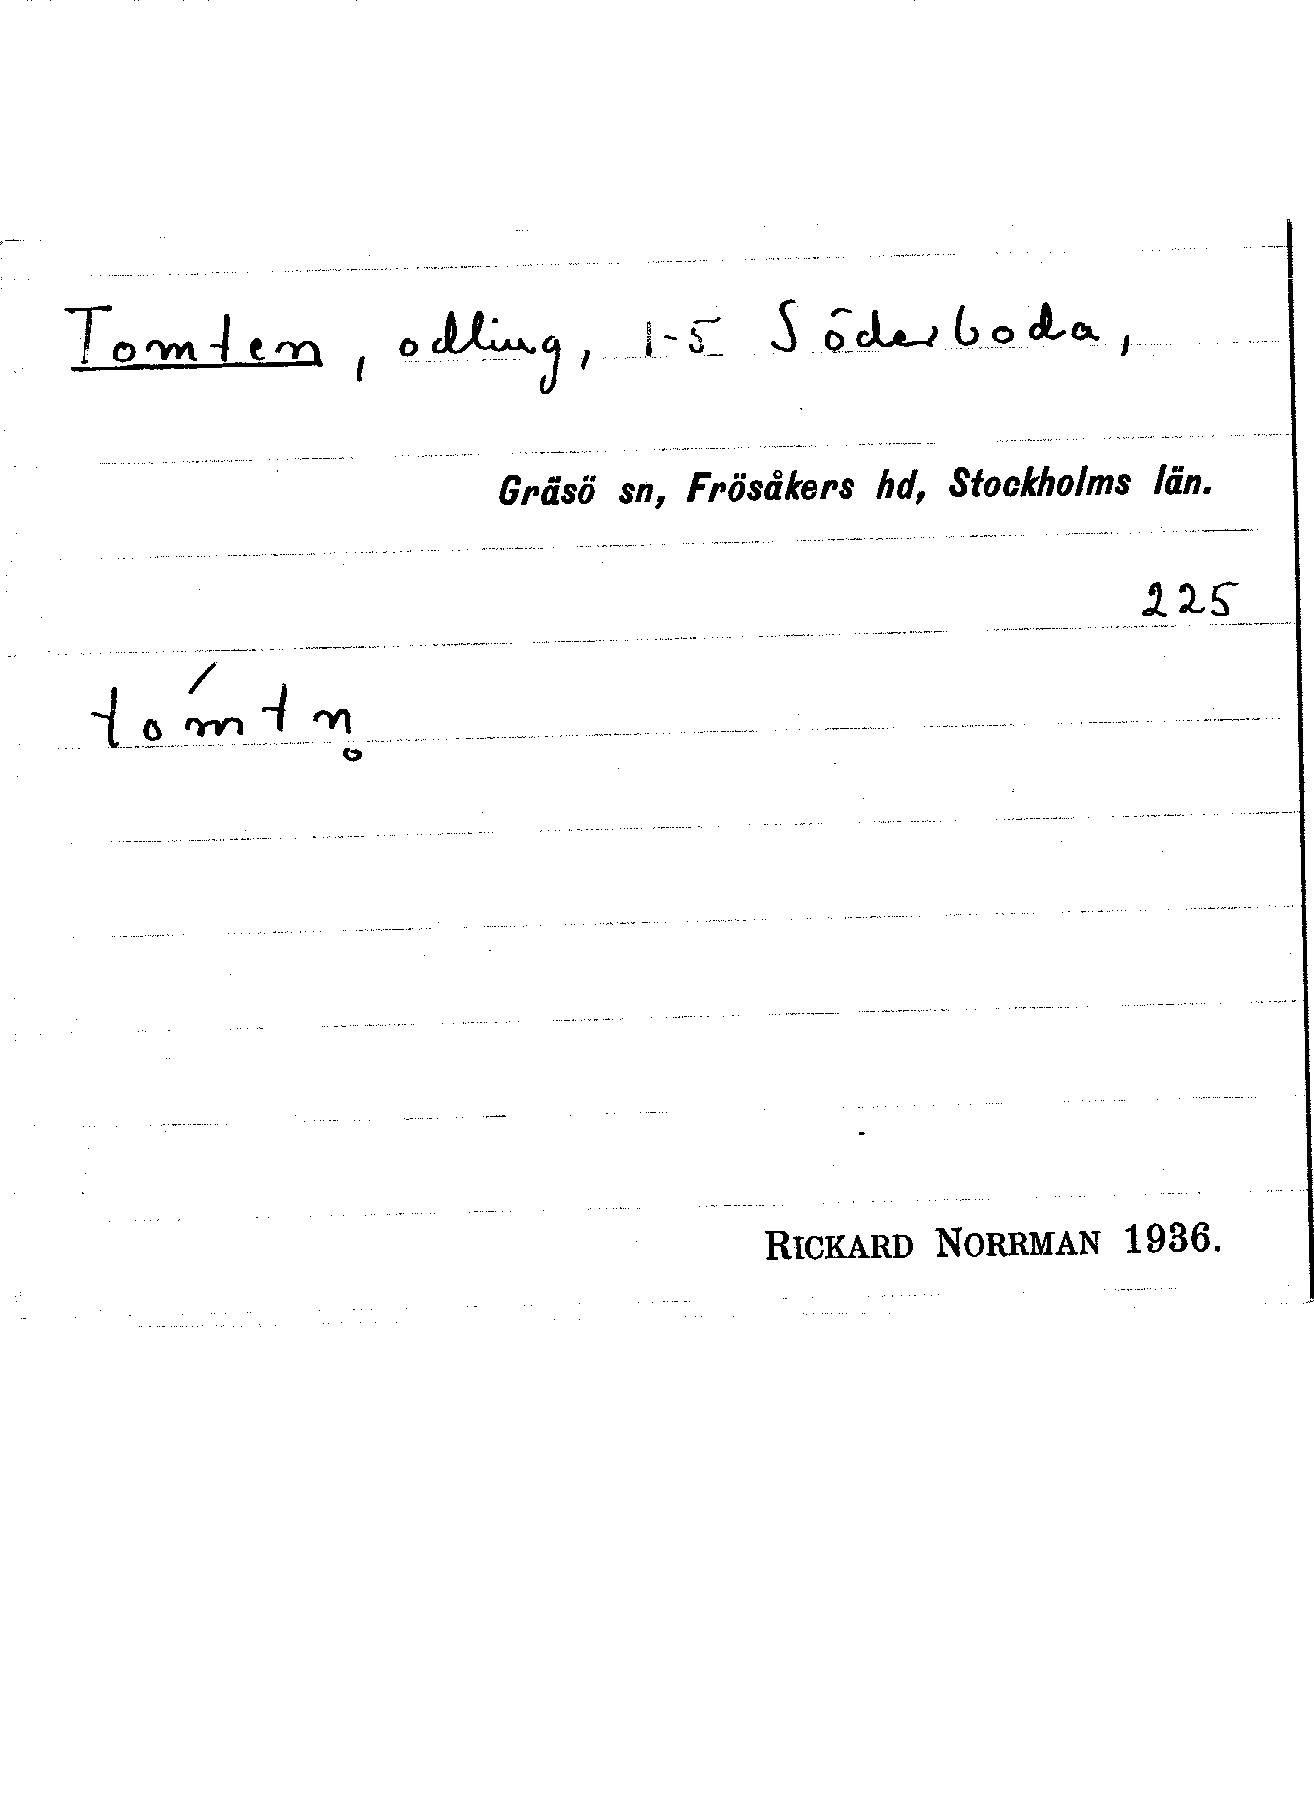 Tomten, odling, 1-5 Söderboda,
Gräsö sn, Frösåkers hd, Stockholms län.
225
toḿtn̥
RICKARD NORRMAN 1936.